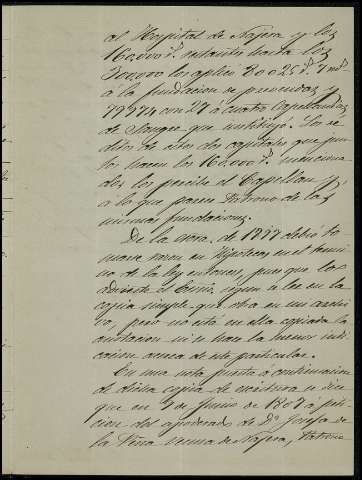 al Hospital de Najera y los
160,000 rs. restantes hasta los
300000 los aplicó 80025 rs. 7 mrs.
á la fundacion de prevendas y
79974 con 27 á cuatro Capellanías
de Sangre que instituyó. Los ré-
ditos de estos dos capitales que jun-
tos hacen los 160,000 rs. menciona-
dos los percibe el Capellan
á lo que parece Patrono de las
mismas fundaciones.
De la escra. de 1777 debió to-
marse razon en Hipotecas en el térmi-
no de la ley entonces, pues que lo
advierte el Escno. segun se lee en la
copia simple que obra en un archi-
vo, pero no está en ella copiada la
anotacion ni se hace la menor indi-
cacion acerca de este particular.
En una nota puesta á continuacion
de dicha copia de escritura se dice
que en 9 de Junio de 1807 á peti-
cion del apoderado de Da. Josefa de
la Peña vecina de Najera, Patrona